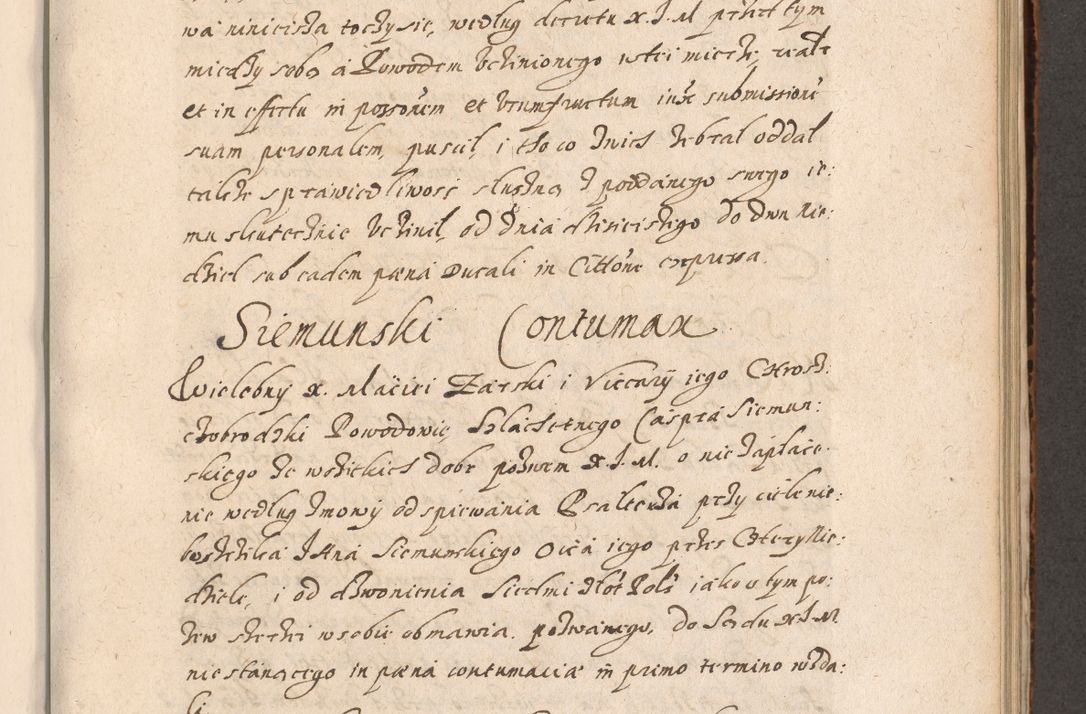 wa ninieisza toczy sie, według decretu X. J. M przed tym
między sobą a Powodem Uczinionego w tei mierze, reale
et in effectu in possōnem et Usumfructum iuxt submissionē
suam personalem, puscił, i tho co z nich zebrał oddał
także sprawiedliwosć słuszną z poddanego swego ie:
mu skutecznie Uczinił, od dnia dzisieiszego do dwu Nie:
dziel sub eadem pæna Ducali in Cittōne expressa.
Siemunski Contumax
Wielebny X. Maciei Zarski i Viccary iego Chrosz:
czobrodzki Powodowie, Szlachetnego Caspra Siemun:
skiego ze wszitkich dobr pozwem X. J. M. o nie zapłace
nie według zmowy od spiewania Psałterza przy ciele nie:
boszczika Jana Siemunskiego Oica iego przez Cztery Nie:
dziele, i od dzwonienia Siedmi złot Pols iako o tym po:
zew szerzei w sobie obmawia. pozwanego, do Sądu X J M
nie stanącego in pæna contumaciæ in primo termino wzda: